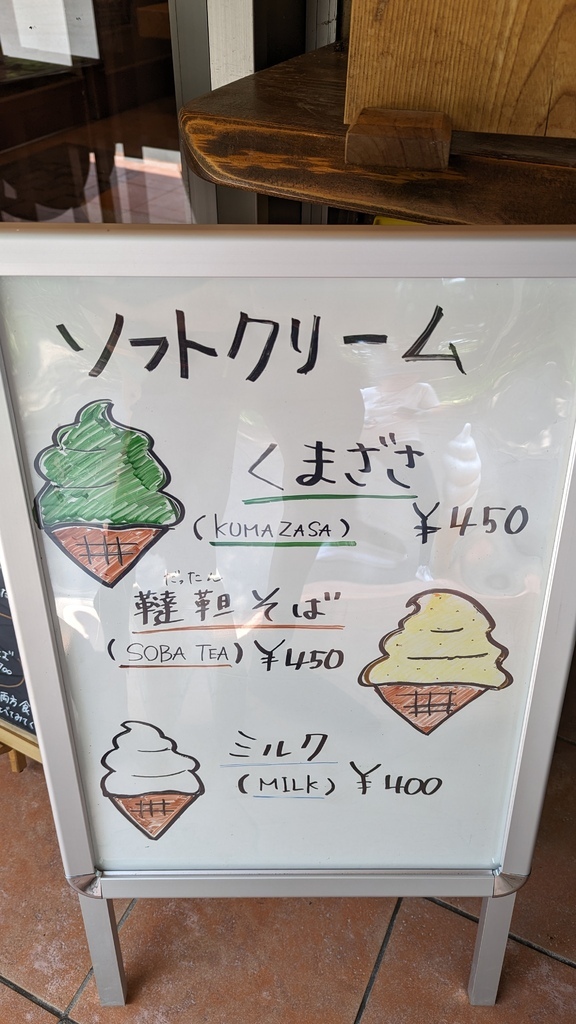 ソフトクリーム
くまざさ
(KUMAZASA) ¥450
だったん
韃靼そば
(SOBA TEA) ¥450
ミルク
(MILK) ¥400